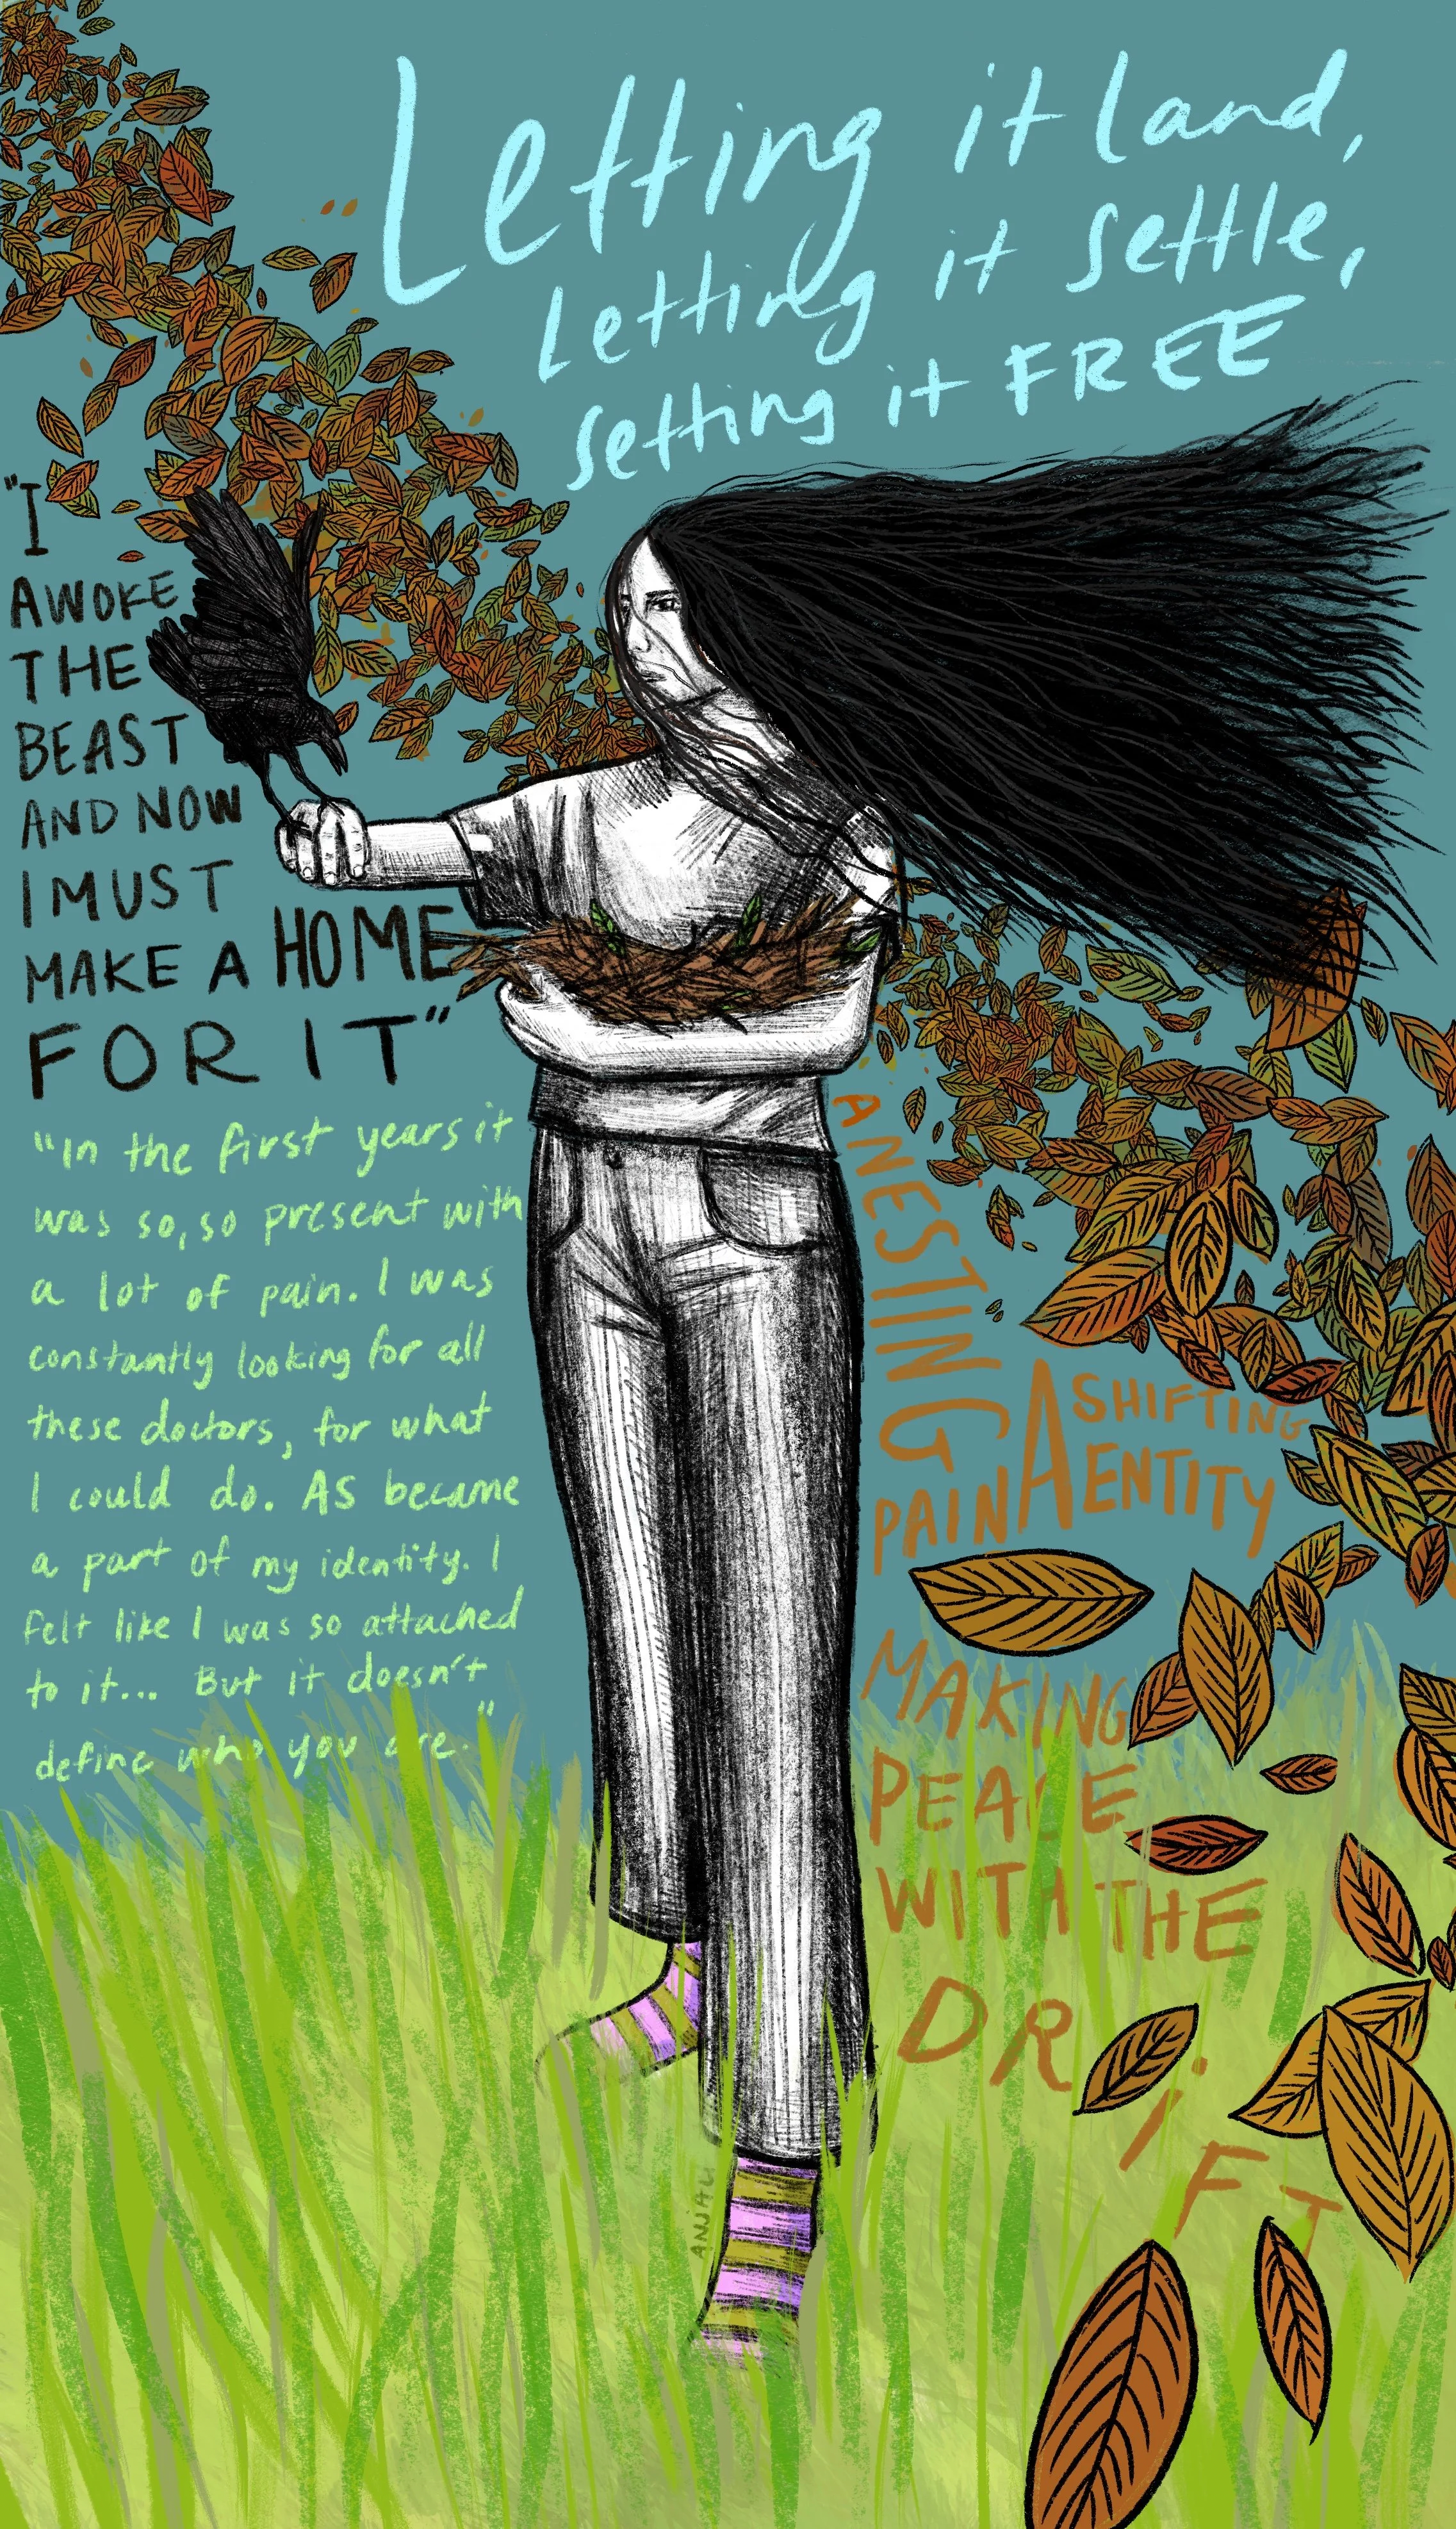 Letting it land,
letting it settle,
setting it FREE
"I
AWOKE
THE
BEAST
AND NOW
I MUST
MAKE A HOME
FOR IT"
"In the first years it
was so, so present with
a lot of pain. I was
constantly looking for all
these doctors, for what
I could do. AS became
a part of my identity. I
felt like I was so attached
to it... But it doesn't
define who you are."
A NESTING
PAIN A SHIFTING
ENTITY
MAKING
PEACE
WITH THE
DRiFT
ANJALI